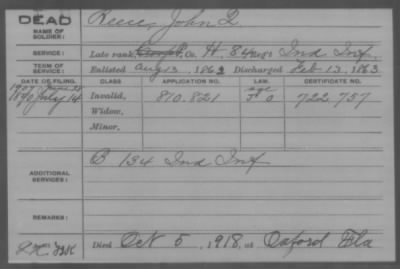 DEAD
NAME OF SOLDIER:
John
SERVICE:
Late rank, Co. H. 84 Reg't Ind Inf.
TERM OF SERVICE:
Enlisted Aug 13, 1862 Discharged Feb 13, 1863
DATE OF FILING. CLASS. APPLICATION NO. LAW. CERTIFICATE NO.
1907 June
1890 July 14 Invalid, 810,821 722,757
Widow,
Minor,
B 134 Ind Inf
ADDITIONAL SERVICES:
REMARKS:
Died Oct 5, 1918, at Oxford Fla